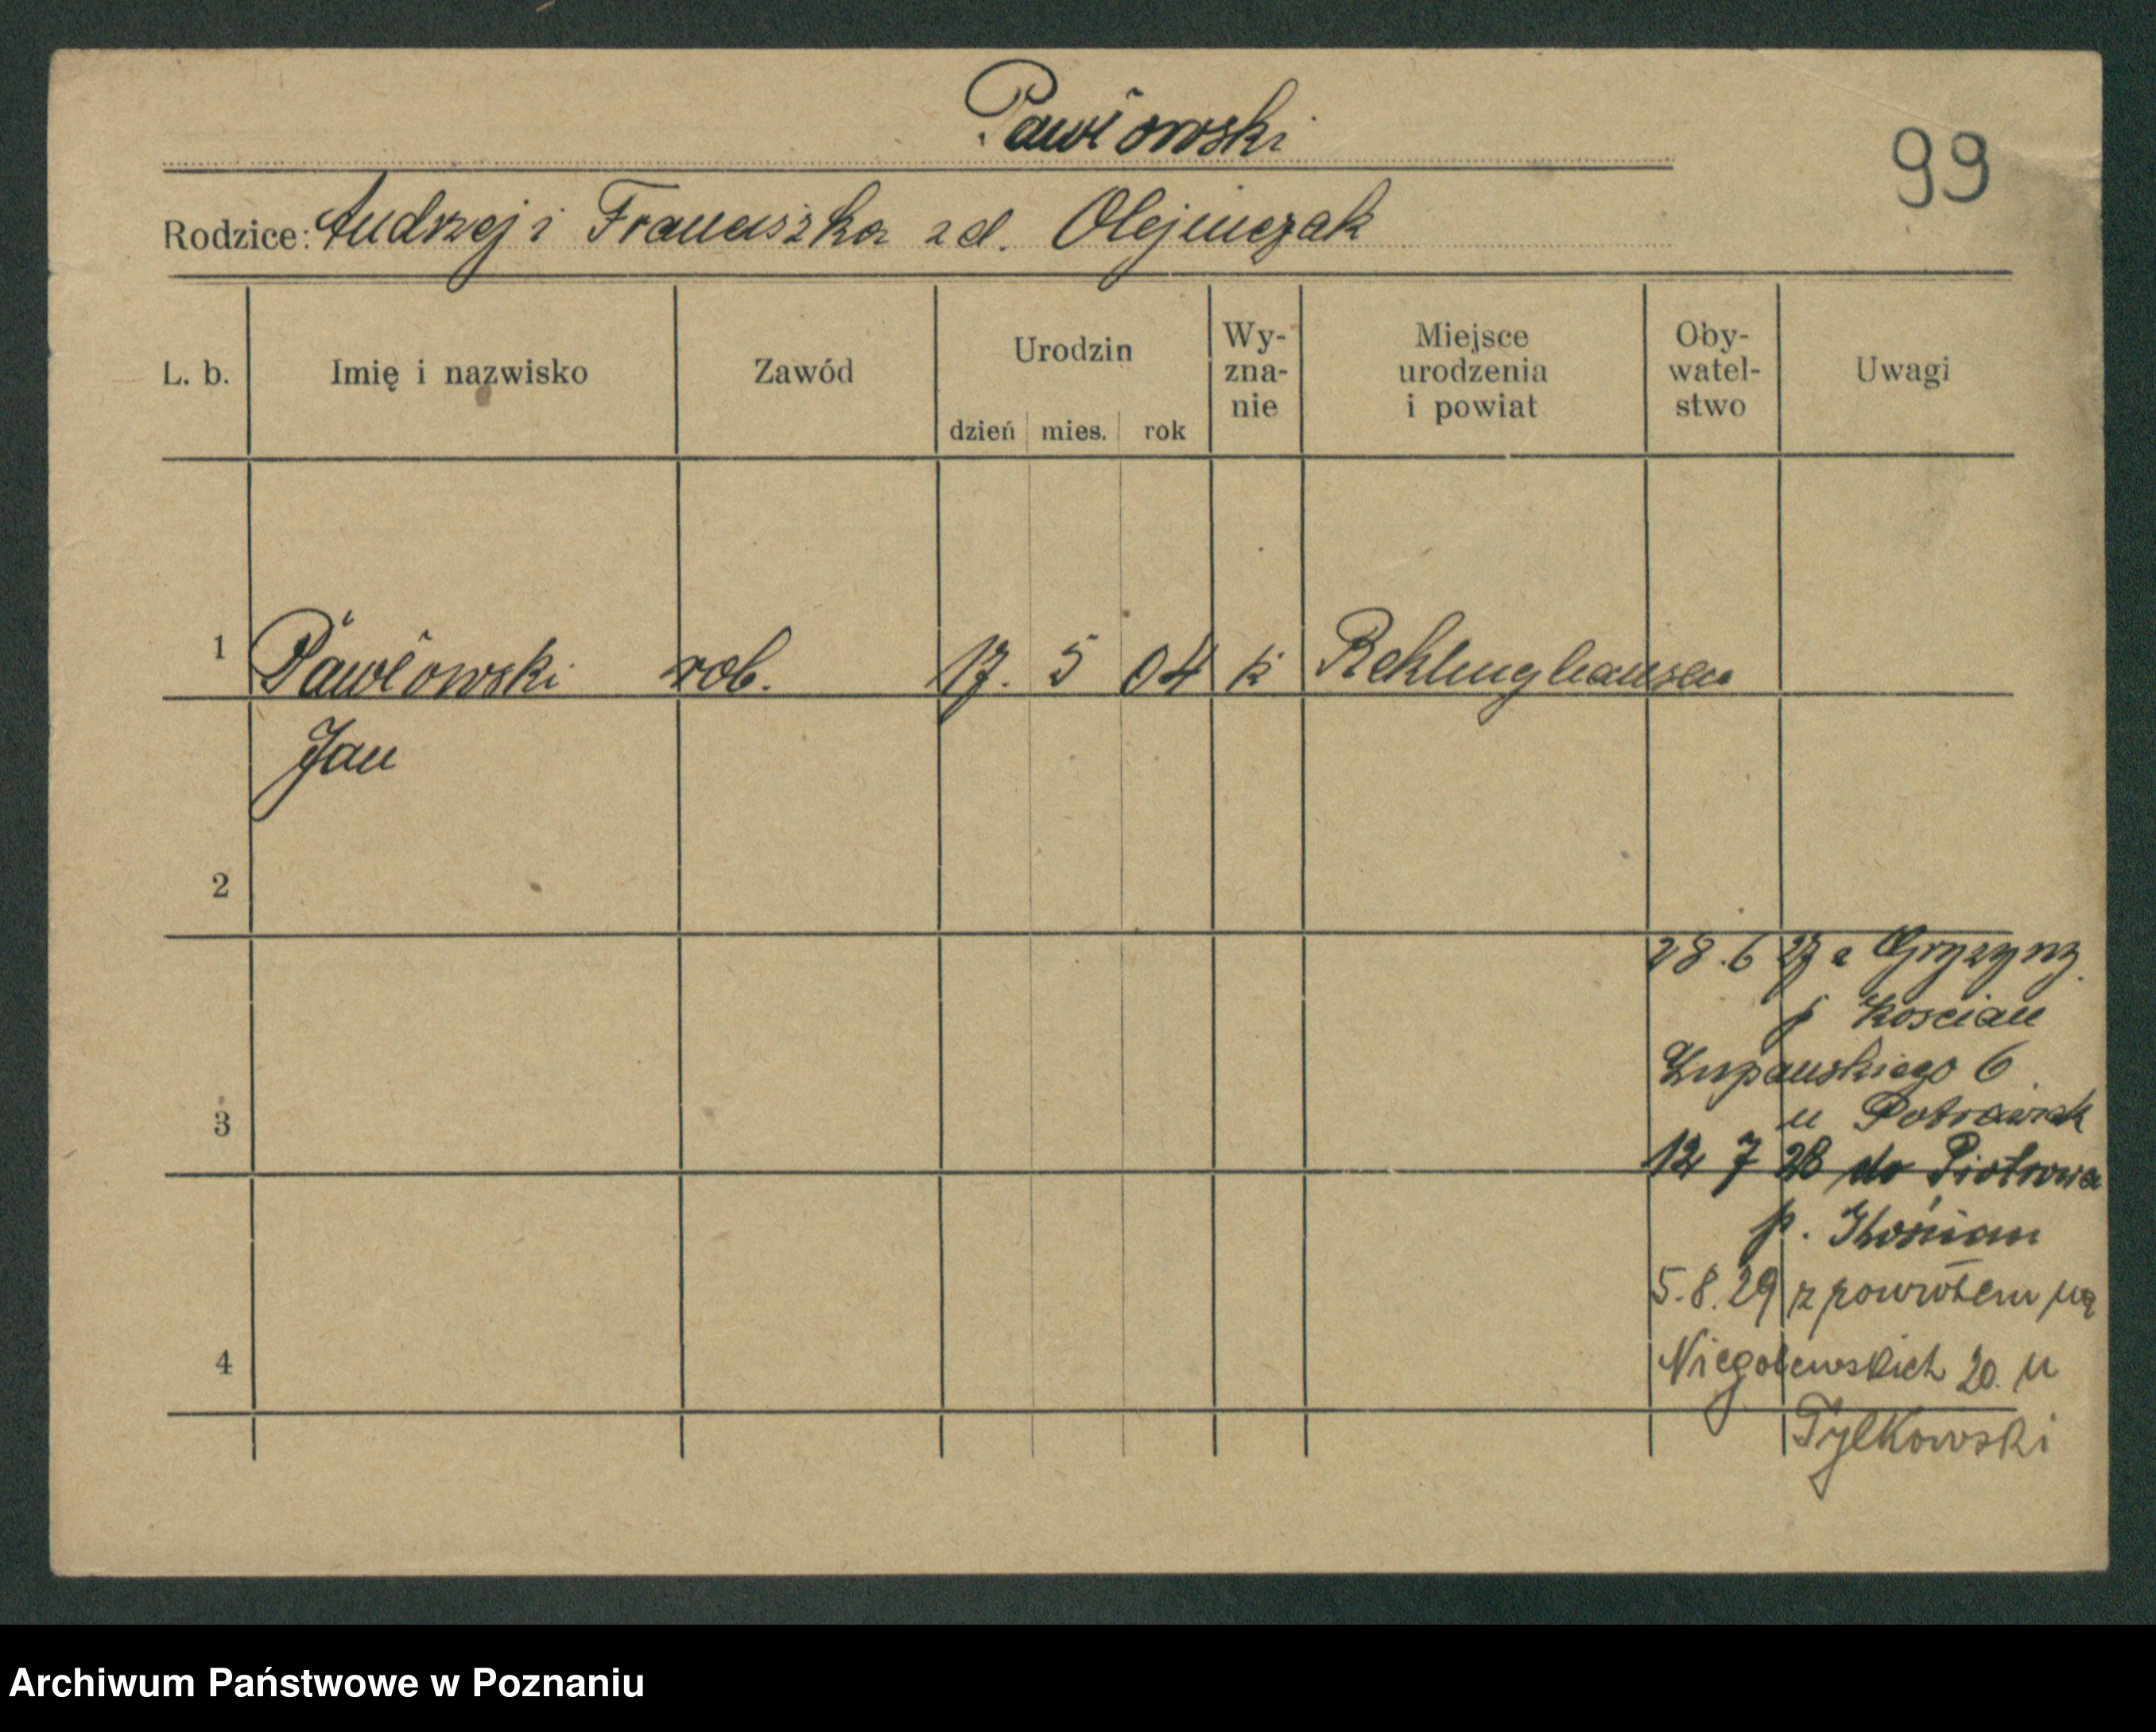 Pawłowski
99
Rodzice: Andrzej i Franciszka zd. Olejniczak
L. b. Imię i nazwisko Zawód Urodzin dzień mies. rok Wy-zna-nie Miejsce urodzenia i powiat Oby-watel-stwo Uwagi
1 Pawłowski rob. 17. 5 04 k Reklinghausen
Jan
2
28.6 27 z Gryżyny
p Kościan
Łupańskiego 6
3
u Potrawiak
12 7 28 do Piotrowa
p. Kościan
5.8.29 z powrotem na
4 Niegolewskich 20. u
Tylkowski
Archiwum Państwowe w Poznaniu